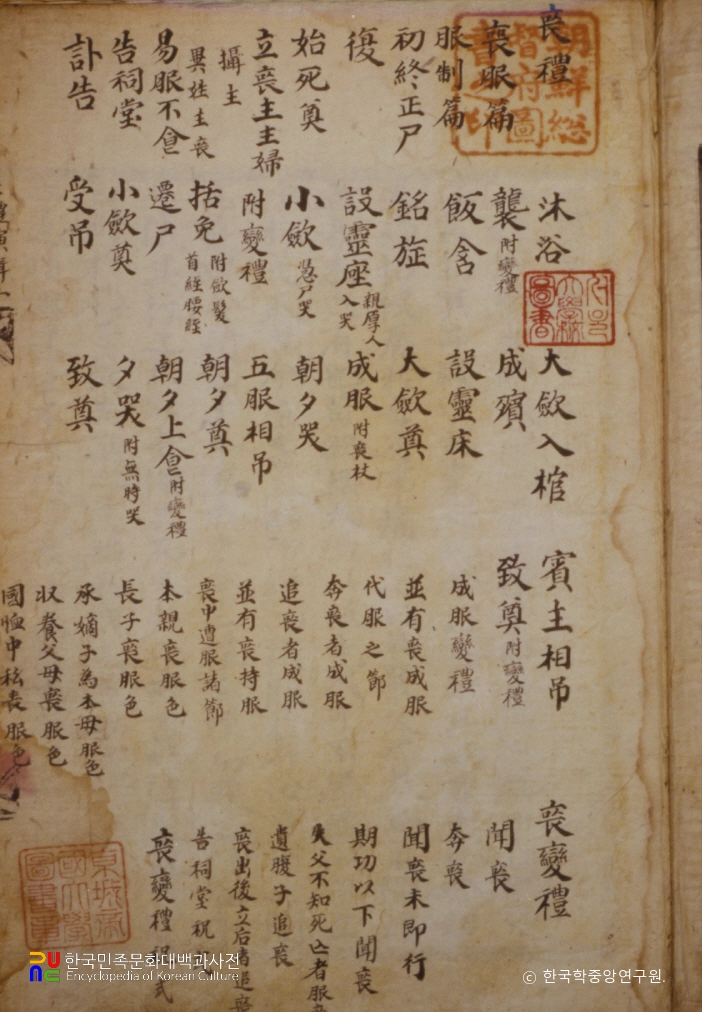 喪禮
喪服篇
服制篇
初終正尸
復
始死奠
立喪主主婦
攝主
異姓主喪
易服不食
告祠堂
訃告
沐浴
襲 附變禮
飯含
銘旌
設靈座 親厚人入哭
小斂 慿尸哭
附變禮
括免 附斂髮 首絰腰絰
遷尸
小斂奠
受吊
大斂入棺
成殯
設靈床
大斂奠
成服 附喪杖
朝夕哭
五服相吊
朝夕奠
朝夕上食 附變禮
夕哭 附無時哭
致奠
賓主相吊
致奠 附變禮
成服變禮
並有喪成服
代服之節
奔喪者成服
追喪者成服
並有喪持服
喪中遭服諸節
本親喪服色
長子喪服色
承嫡子為本母服色
収養父母喪服色
國恤中私喪服色
喪變禮
聞喪
奔喪
聞喪未即行
期功以下聞喪
失父不知死亡者服
遺腹子追喪
喪出後立后者追喪
告祠堂祝
喪變禮祝式
한국민족문화대백과사전
Encyclopedia of Korean Culture
© 한국학중앙연구원.